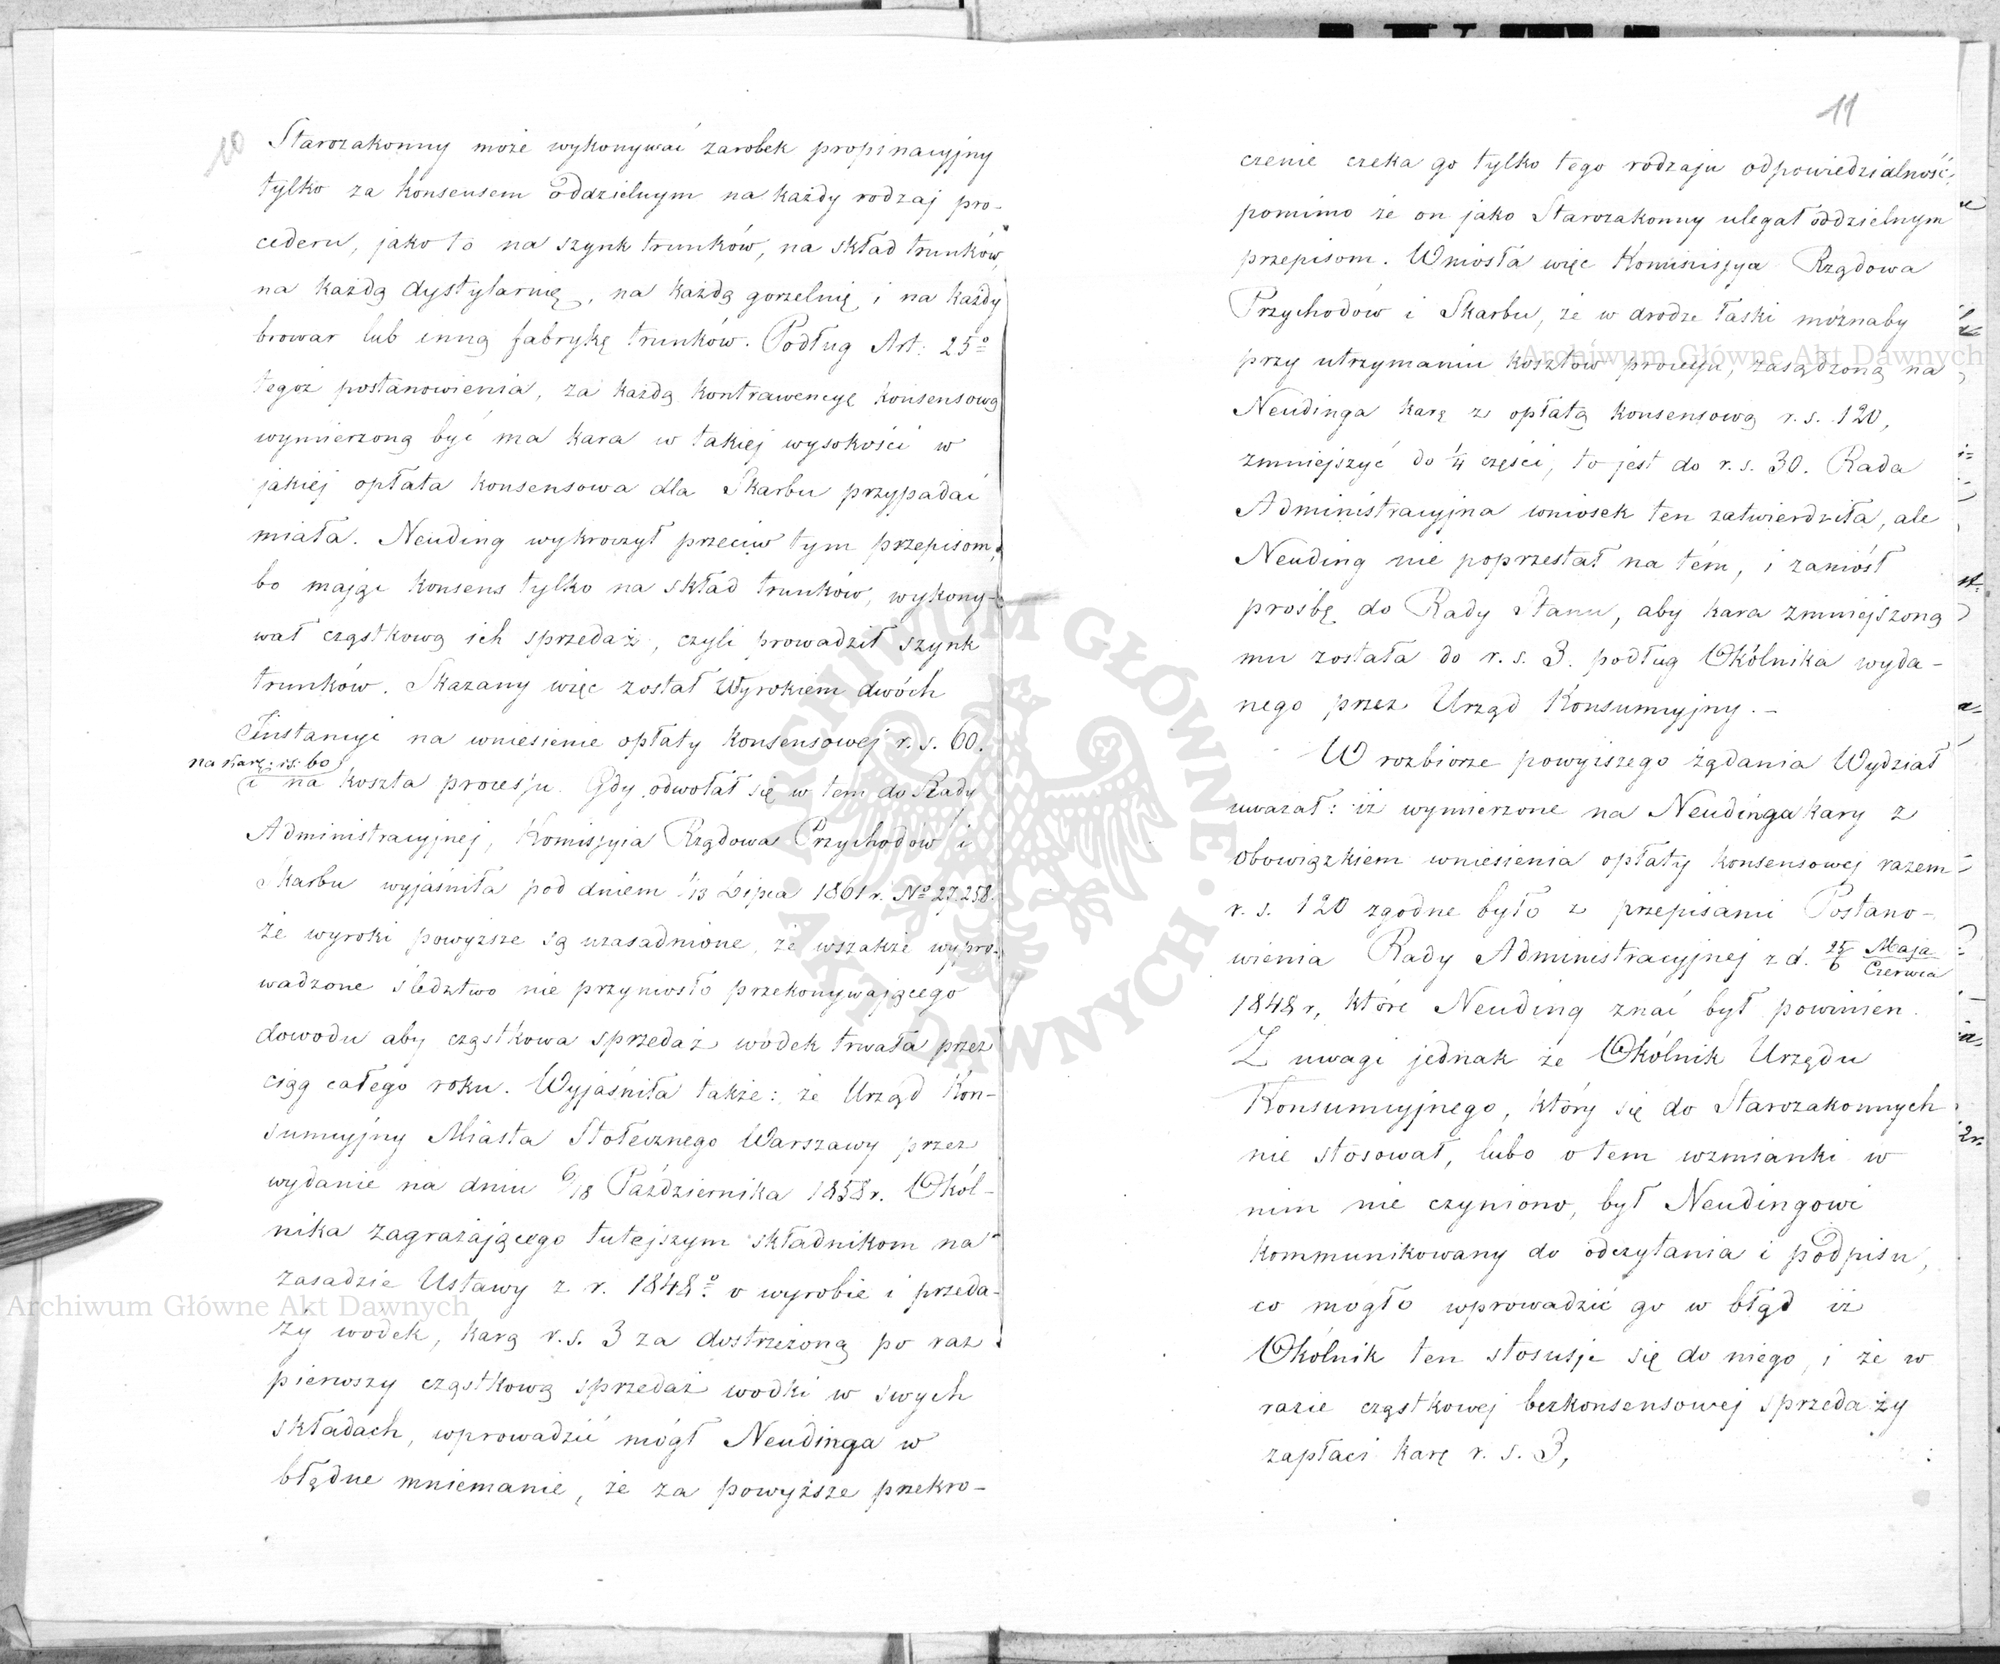 10
Starozakonny może wykonywać zarobek propinacyjny
tylko za konsensem oddzielnym na każdy rodzaj pro-
cederu, jako to na szynk trunków, na skład trunków,
na każdą dystylarnię, na każdą gorzelnię, i na każdy
browar lub inną fabrykę trunków. Podług Art: 25º
tegoż postanowienia, za każdą kontrawencyę konsensową
wymierzoną być ma kara w takiej wysokości w
jakiej opłata konsensowa dla Skarbu przypadać
miała. Neuding wykroczył przeciw tym przepisom,
bo mając konsens tylko na skład trunków, wykony-
wał cząstkową ich sprzedaż, czyli prowadził szynk
trunków. Skazany więc został Wyrokiem dwóch
Instancyi na wniesienie opłaty konsensowej r. s. 60.
na karę r.s. 60
i na koszta processu. Gdy odwołał się w tem do Rady
Administracyjnej, Komissyia Rządowa Przychodów i
Skarbu wyjaśniła pod dniem 1/13 Lipca 1861 r. Nº 27.258.
że wyroki powyższe są uzasadnione, że wszakże wypro-
wadzone śledztwo nie przyniosło przekonywającego
dowodu aby cząstkowa sprzedaż wódek trwała przez
ciąg całego roku. Wyjaśniła także: że Urząd Kon-
sumcyjny Miasta Stołecznego Warszawy przez
wydanie na dniu 6/18 Października 1858 r. Okól-
nika zagrażającego tutejszym składnikom na
zasadzie Ustawy z r. 1848º o wyrobie i przeda-
ży wódek, karą r. s. 3 za dostrzeżoną po raz
pierwszy cząstkową sprzedaż wodki w swych
składach, wprowadzić mógł Neudinga w
błędne mniemanie, że za powyższe przekro-
11
czenie czeka go tylko tego rodzaju odpowiedzialność,
pomimo że on jako Starozakonny ulegał oddzielnym
przepisom. Wniosła więc Kommissya Rządowa
Przychodów i Skarbu, że w drodze łaski możnaby
przy utrzymaniu kosztów processu, zasądzoną na
Neudinga karę z opłatą konsensową r. s. 120,
zmniejszyć do 1/4 części, to jest do r. s. 30. Rada
Administracyjna wniosek ten zatwierdziła, ale
Neuding nie poprzestał na tém, i zaniósł
prośbę do Rady Stanu, aby kara zmniejszoną
mu została do r. s. 3. podług Okólnika wyda-
nego przez Urząd Konsumcyjny. –
W rozbiorze powyższego żądania Wydział
uważał: iż wymierzone na Neudinga kary z
obowiązkiem wniesienia opłaty konsensowej razem
r. s. 120 zgodne było z przepisami Postano-
wienia Rady Administracyjnej z d. 25/6 Maja/Czerwca
1848 r, które Neuding znać był powinien.
Z uwagi jednak że Okólnik Urzędu
Konsumcyjnego, który się do Starozakonnych
nie stosował, lubo o tem wzmianki w
nim nie czyniono, był Neudingowi
kommunikowany do odczytania i podpisu,
co mogło wprowadzić go w błąd iż
Okólnik ten stosuje się do niego, i że w
razie cząstkowej bezkonsensowej sprzedaży
zapłaci karę r. s. 3,
Archiwum Główne Akt Dawnych
Archiwum Główne Akt Dawnych
ARCHIWUM GŁÓWNE · AKT DAWNYCH ·